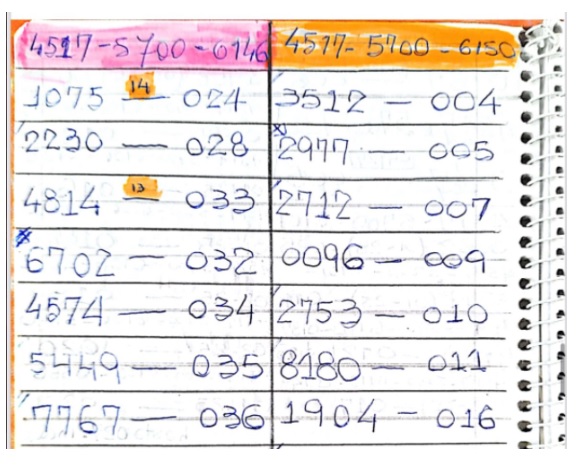 4517-5700-0146 4517-5700-6150
14
1075 — 024 3512 — 004
2230 — 028 x 2977 — 005
13
4814 — 033 2712 — 007
6702 — 032 0096 — 009
4574 — 034 2753 — 010
5449 — 035 8180 — 011
7767 — 036 1904 - 016